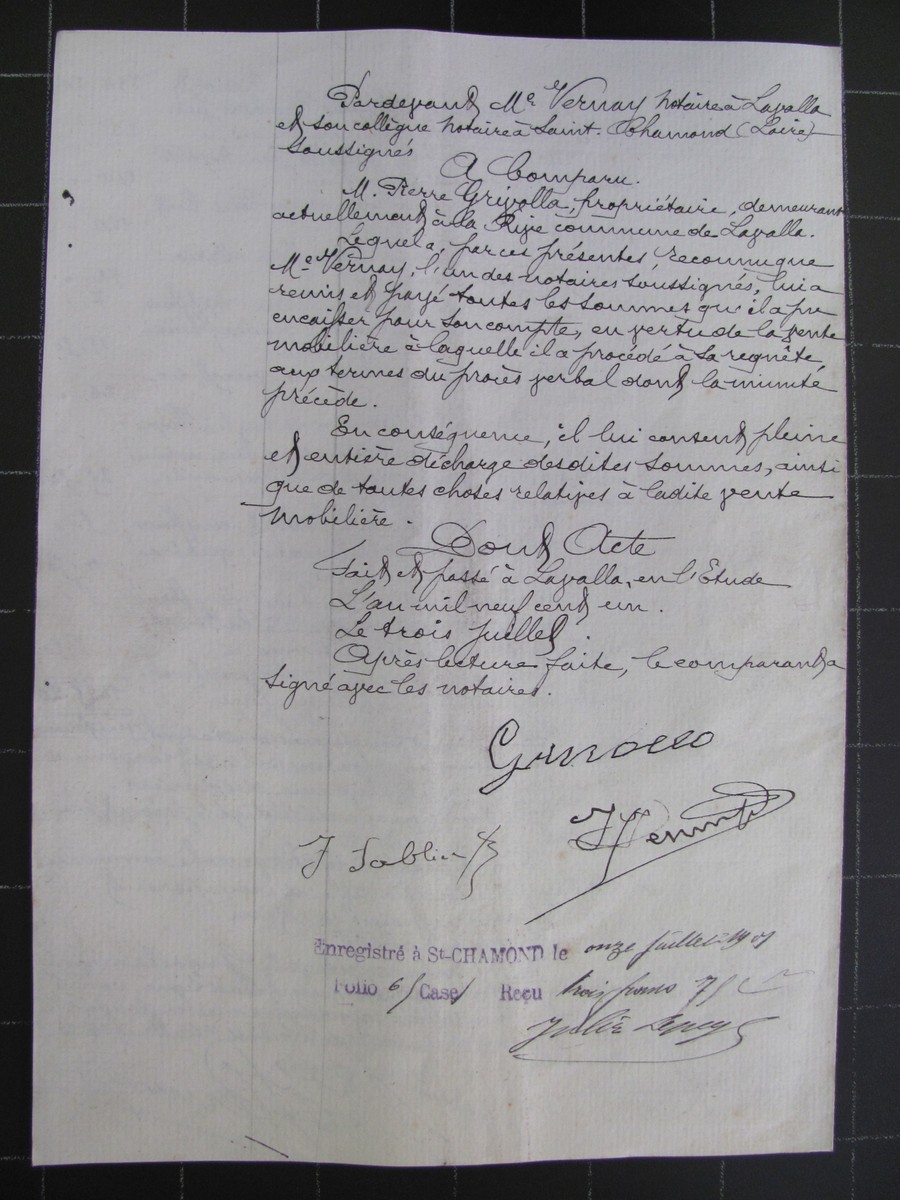 Pardevant Me Vernay notaire à Lavalla
et son collègue notaire à Saint-Chamond (Loire)
soussignés
A Comparu.
M. Pierre Grivolla, propriétaire, demeurant
actuellement à la Rive commune de Lavalla.
Lequel a, par ces présentes reconnu que
Me Vernay, l'un des notaires soussignés, lui a
remis et payé toutes les sommes qu'il a pu
encaisser pour son compte, en vertu de la vente
mobilière à laquelle il a procédé à sa requête
aux termes du procès verbal dont la minute
précède.
En conséquence, il lui consent pleine
et entière décharge desdites sommes, ainsi
que de toutes choses relatives à ladite vente
mobilière.
Dont Acte
Fait et passé à Lavalla, en l'Etude
L'an mil neuf cent un.
Le trois juillet.
Après lecture faite, le comparant a
signé avec les notaires.
J
Enregistré à St-CHAMOND le onze juillet 1901
Folio 6 Case Reçu trois francs 75 c